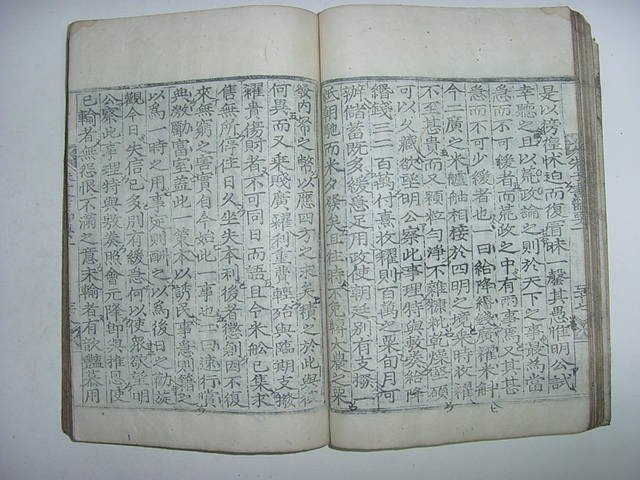 是以徬徨怵迫而復冒昧一罄其愚惟明公試
幸聽之且以荒政論之則於天下之事最爲當
急而不可緩者而荒政之中有兩事焉又其甚
急而不可少緩者也一曰給降緡錢廣糴米斛
今二廣之米艫舳相接於四明之境乘時收糴
不至甚貴而又顆粒勻淨不雜糠粃乾燥堅碩
可以久藏欲望明公察此事理特與敷奏給降
緡錢三二百萬付熹收糴則百萬之粟旬月可
辦儲蓄既多緩急足用政使朝廷別有支撥一
紙朝馳而米夕發矣且往時不免轉大農之粟
發內帑之幣以應四方之求矧積之於此與彼
何異而又乘賤廣糴利重費輕殆與臨期支撥
糴貴傷財者不可同日而語且今米舩已集求
售無所停住日久坐失本利後者懲創因不復
來無窮之害實自今始此一事也二曰速行賞
典激勵富室蓋此一策本以誘民事急則籍之
以爲一時之用事定則酬之以爲後日之勸旋
觀今日失信已多別有緩急何以使衆欲望明
公察此事理特與敷奏照會元降即與推恩使
已輸者無怨恨不滿之意未輸者有歆豔慕用